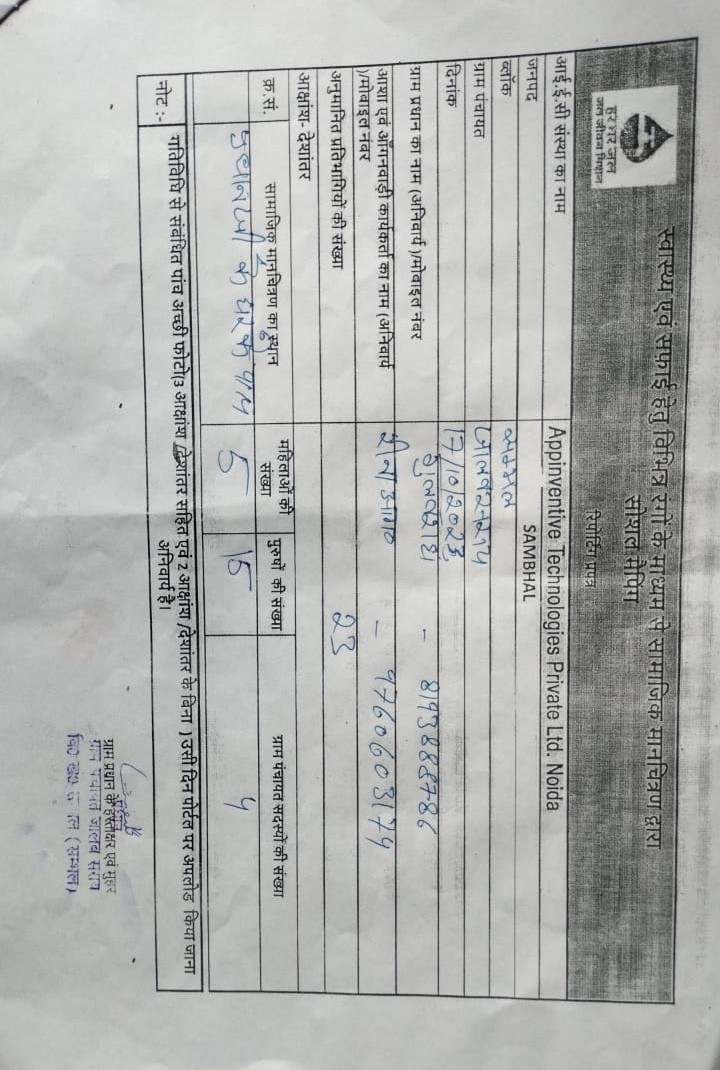 हर घर जल
जल जीवन मिशन
स्वास्थ्य एवं सफाई हेतु विभिन्न रंगों के माध्यम से सामाजिक मानचित्रण द्वारा
सोशल मैपिंग
रिपोर्टिंग प्रपत्र
आई.ई.सी संस्था का नाम Appinventive Technologies Private Ltd. Noida
जनपद SAMBHAL
ब्लॉक सम्भल
ग्राम पंचायत जालब सराय
दिनांक 17/10/2023
ग्राम प्रधान का नाम (अनिवार्य )/मोबाइल नंबर - 8193888786
आशा एवं आँगनवाड़ी कार्यकर्ता का नाम (अनिवार्य
)/मोबाइल नंबर - 9760603174
अनुमानित प्रतिभागियों की संख्या 23
आक्षांश- देशांतर
क्र.सं. सामाजिक मानचित्रण का स्थान महिलाओं की संख्या पुरुषों की संख्या ग्राम पंचायत सदस्यों की संख्या
प्रधान जी के घर के पास 5 15 4
नोट :- गतिविधि से संबंधित पांच अच्छी फोटो(3 आक्षांश /देशांतर सहित एवं 2 आक्षांश /देशांतर के बिना ) उसी दिन पोर्टल पर अपलोड किया जाना
अनिवार्य है।
ग्राम प्रधान के हस्ताक्षर एवं मुहर
ग्राम पंचायत जालब सराय
(सम्भल)